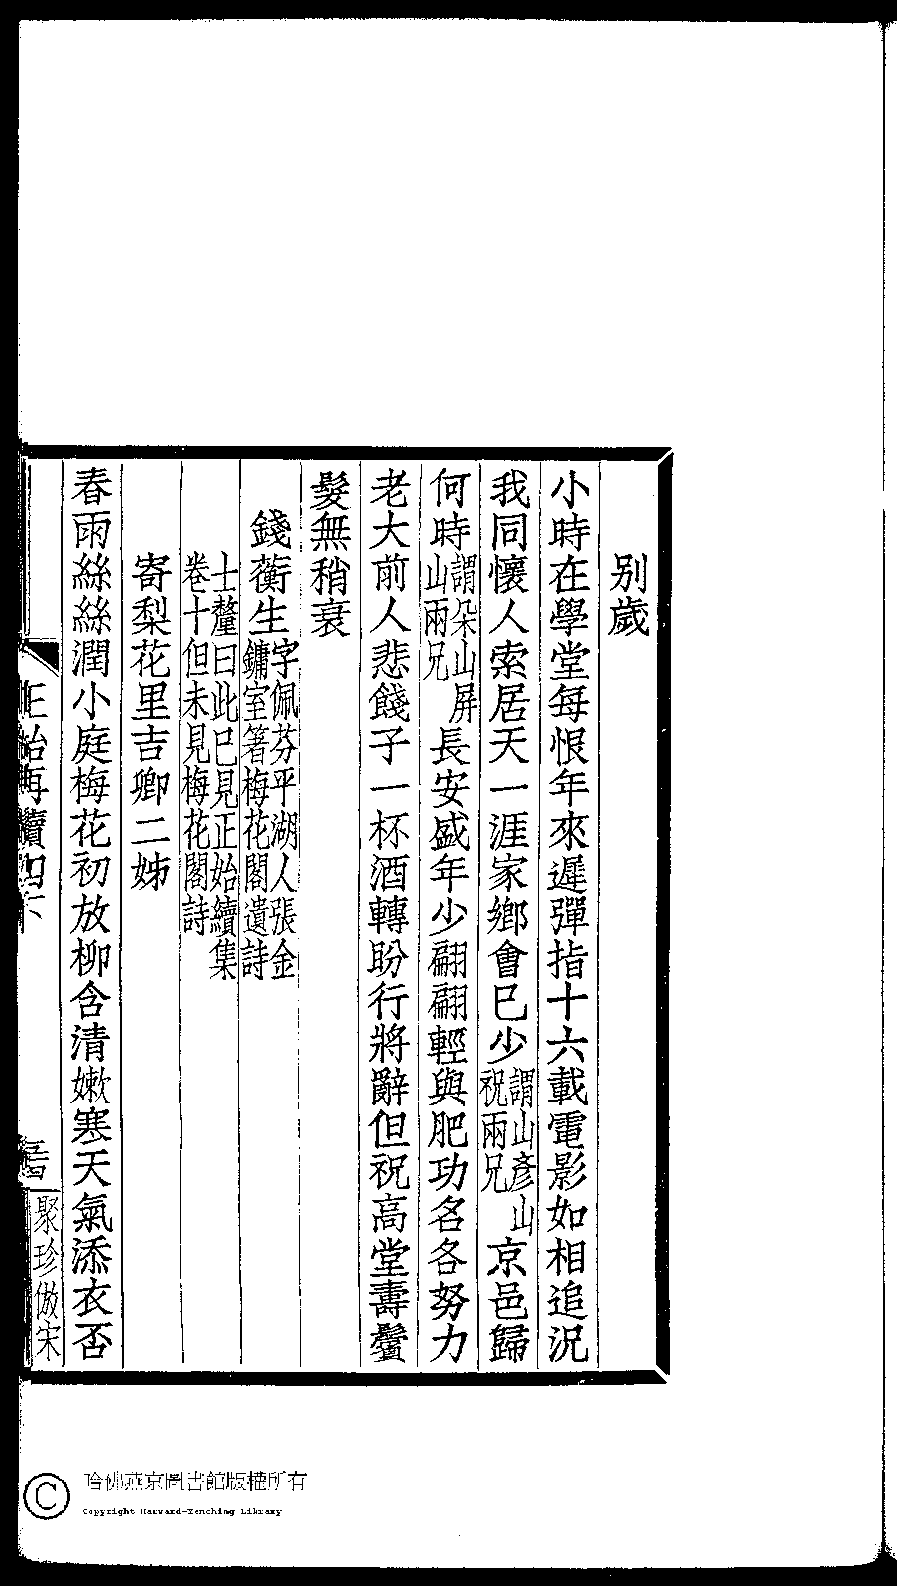 別歲
小時在學堂每恨年來遲彈指十六載電影如相追況
我同懷人索居天一涯家鄉會已少謂山彥山祝兩兄京邑歸
何時謂朵山屏山兩兄長安盛年少翩翩輕與肥功名各努力
老大前人悲餞子一杯酒轉盼行將辭但祝高堂壽鬢
髮無稍衰
錢蘅生字佩芬平湖人張金鏞室箸梅花閣遺詩
士釐曰此已見正始續集
卷十但未見梅花閣詩
寄梨花里吉卿二姊
春雨絲絲潤小庭梅花初放柳含清嫩寒天氣添衣否
正始再續四下
聚珍倣宋
哈佛燕京圖書館版權所有
Copyright Harvard-Yenching Library